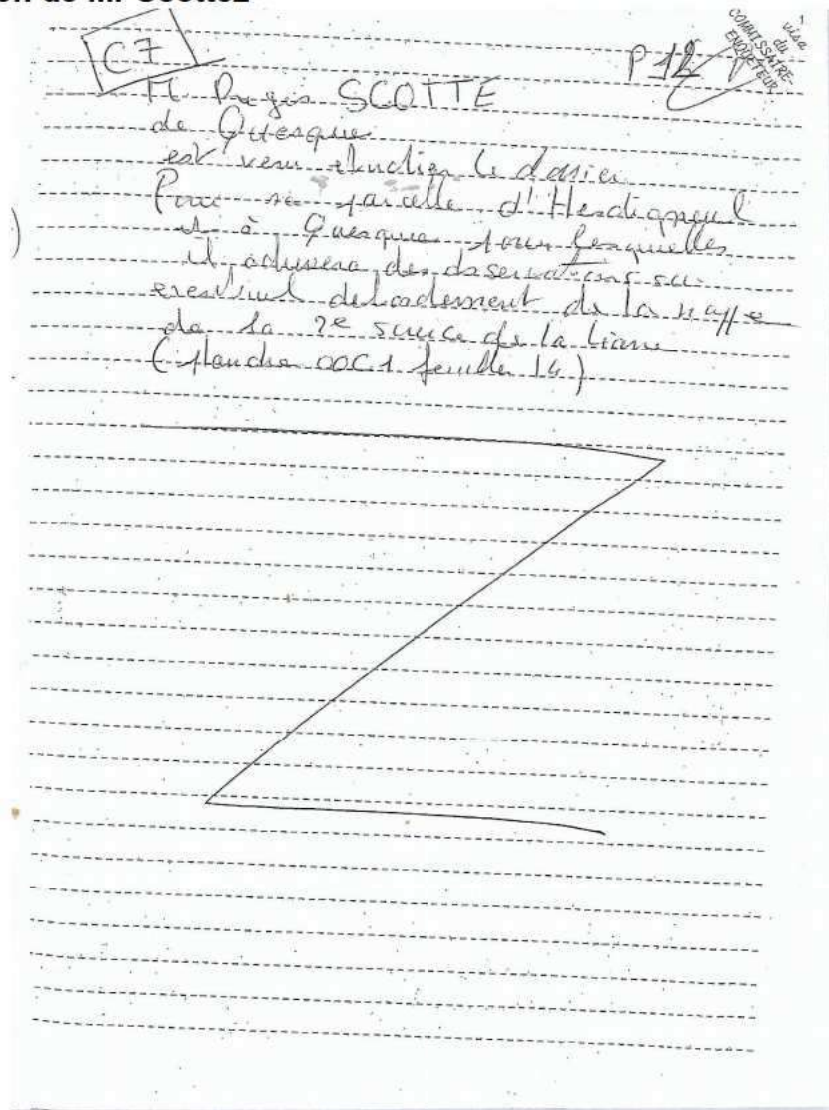 C7
P 12
visa
du
COMMISSAIRE-
ENQUÊTEUR
1
M SCOTTE
de Quesques
est venu étudier le dossier
Pour sa parcelle d'Hesdigneul
et à Quesques pour lesquelles
il adressera des observations sur
débordement de la nappe
de la 2e source de la Liane
(planche OOC1 feuille 14)